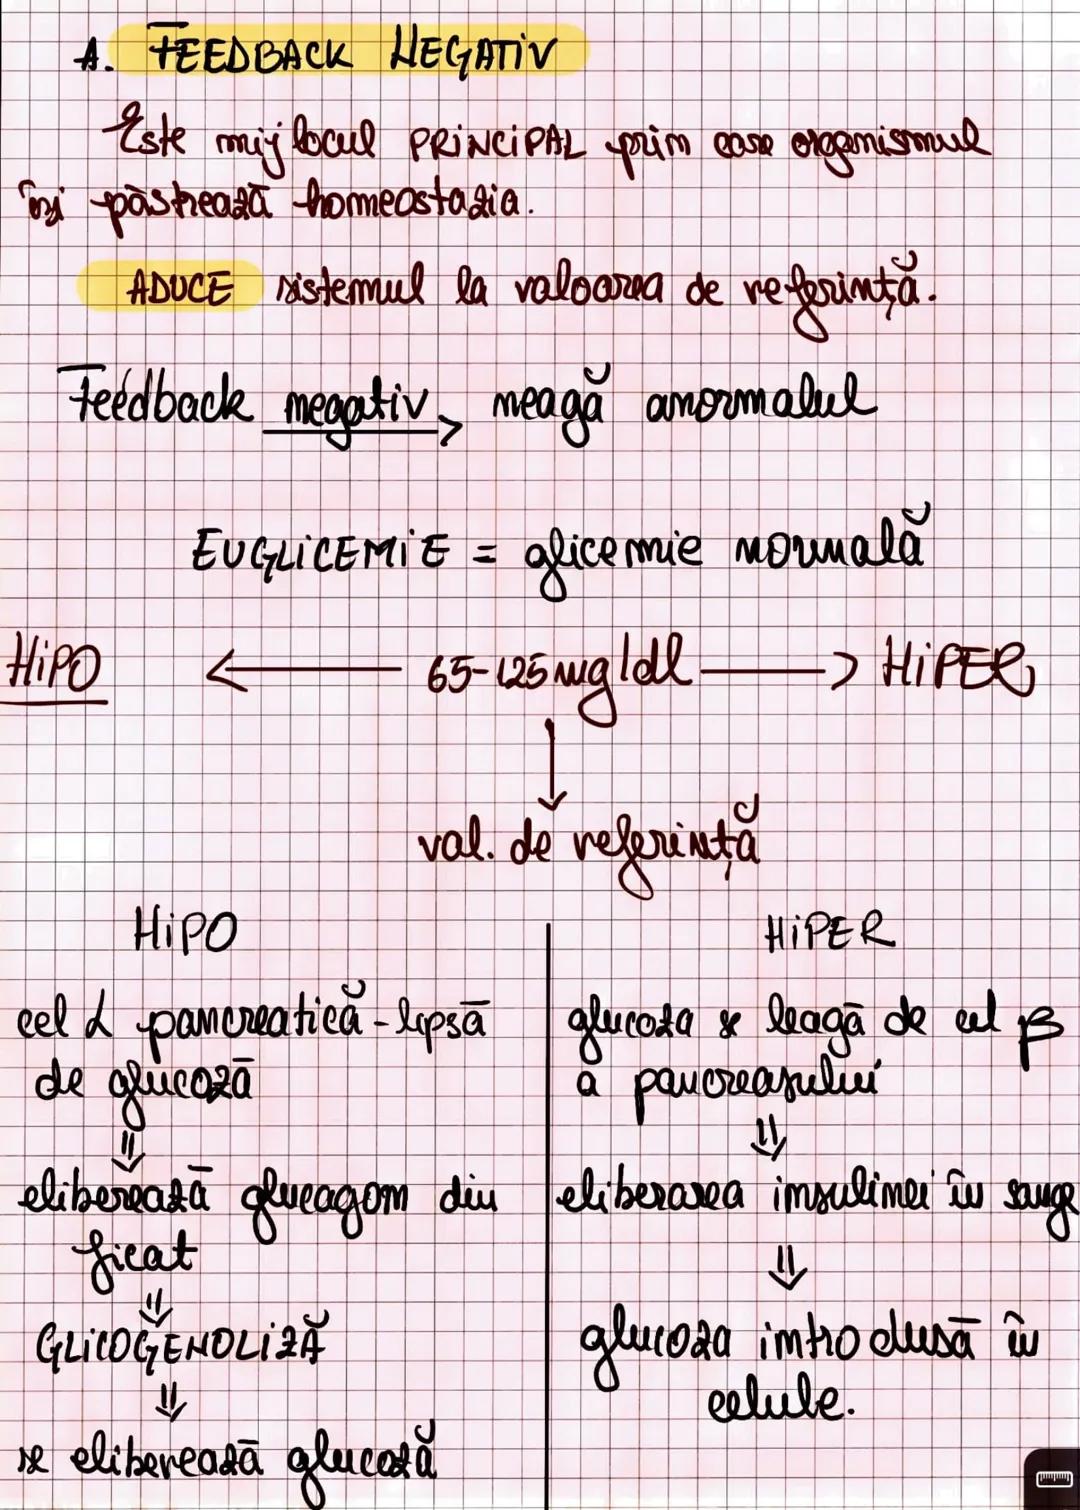 A. FEEDBACK NEGATIV
Este mijlocul PRINCIPAL prin care organismul
își păstrează homeostazia.
ADUCE sistemul la valoarea de referință.
Feedback negativ → neagă anormalul
EUGLICEMIE = glicemie normală
HIPO ← 65-125 mg/dl → HIPER
↓
val. de referință
HIPO
cel α pancreatică - lipsă
de glucoză
⇓
eliberează glucagom din
ficat
⇓
GLICOGENOLIZĂ
⇓
se eliberează glucoză
HIPER
glucoza se leagă de cel β
a pancreasului
⇓
eliberarea insulinei în sange
⇓
glucoza introdusă în
celule.